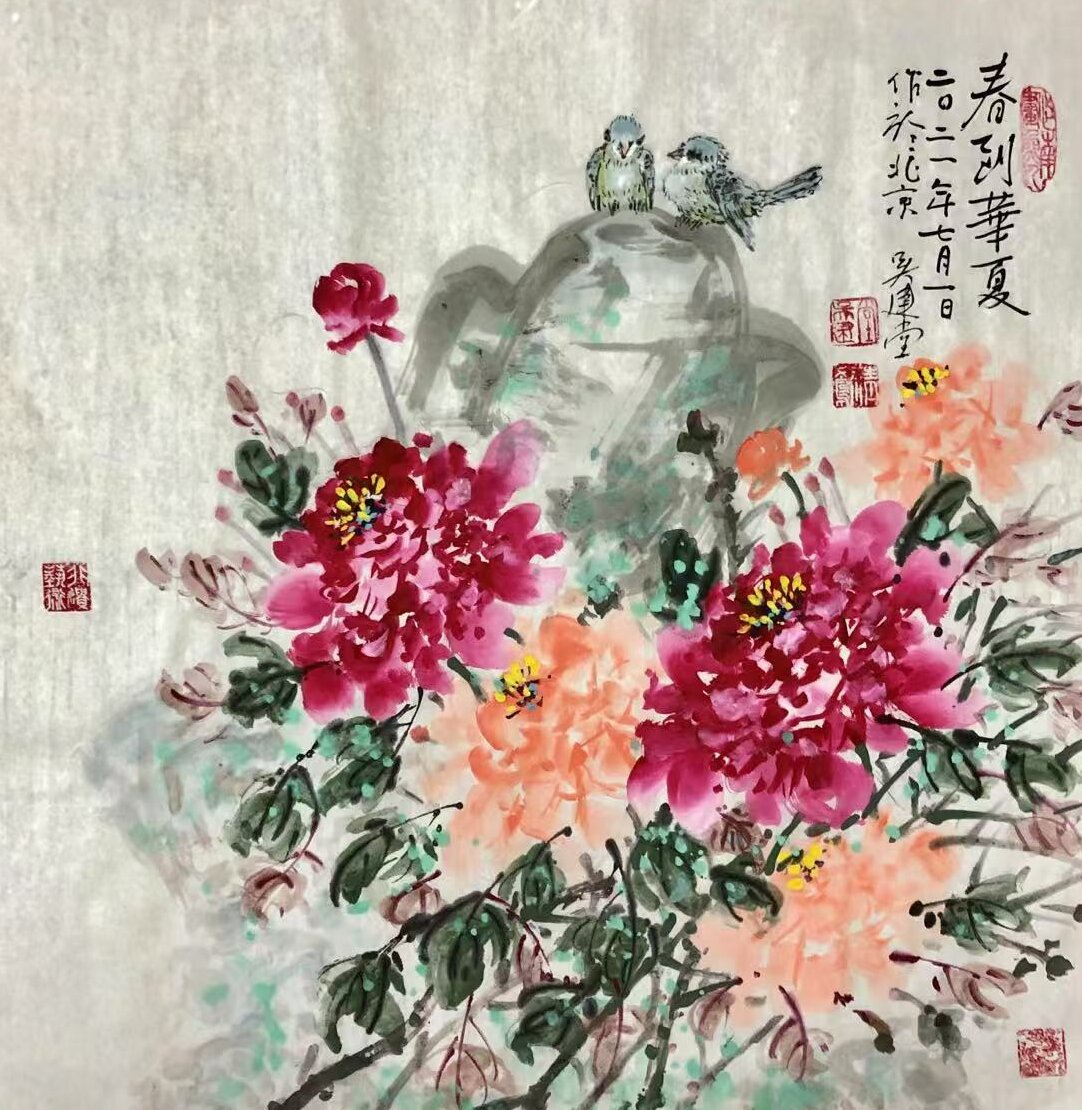 春到華夏
二〇二一年七月一日
作於北京 吴建堂